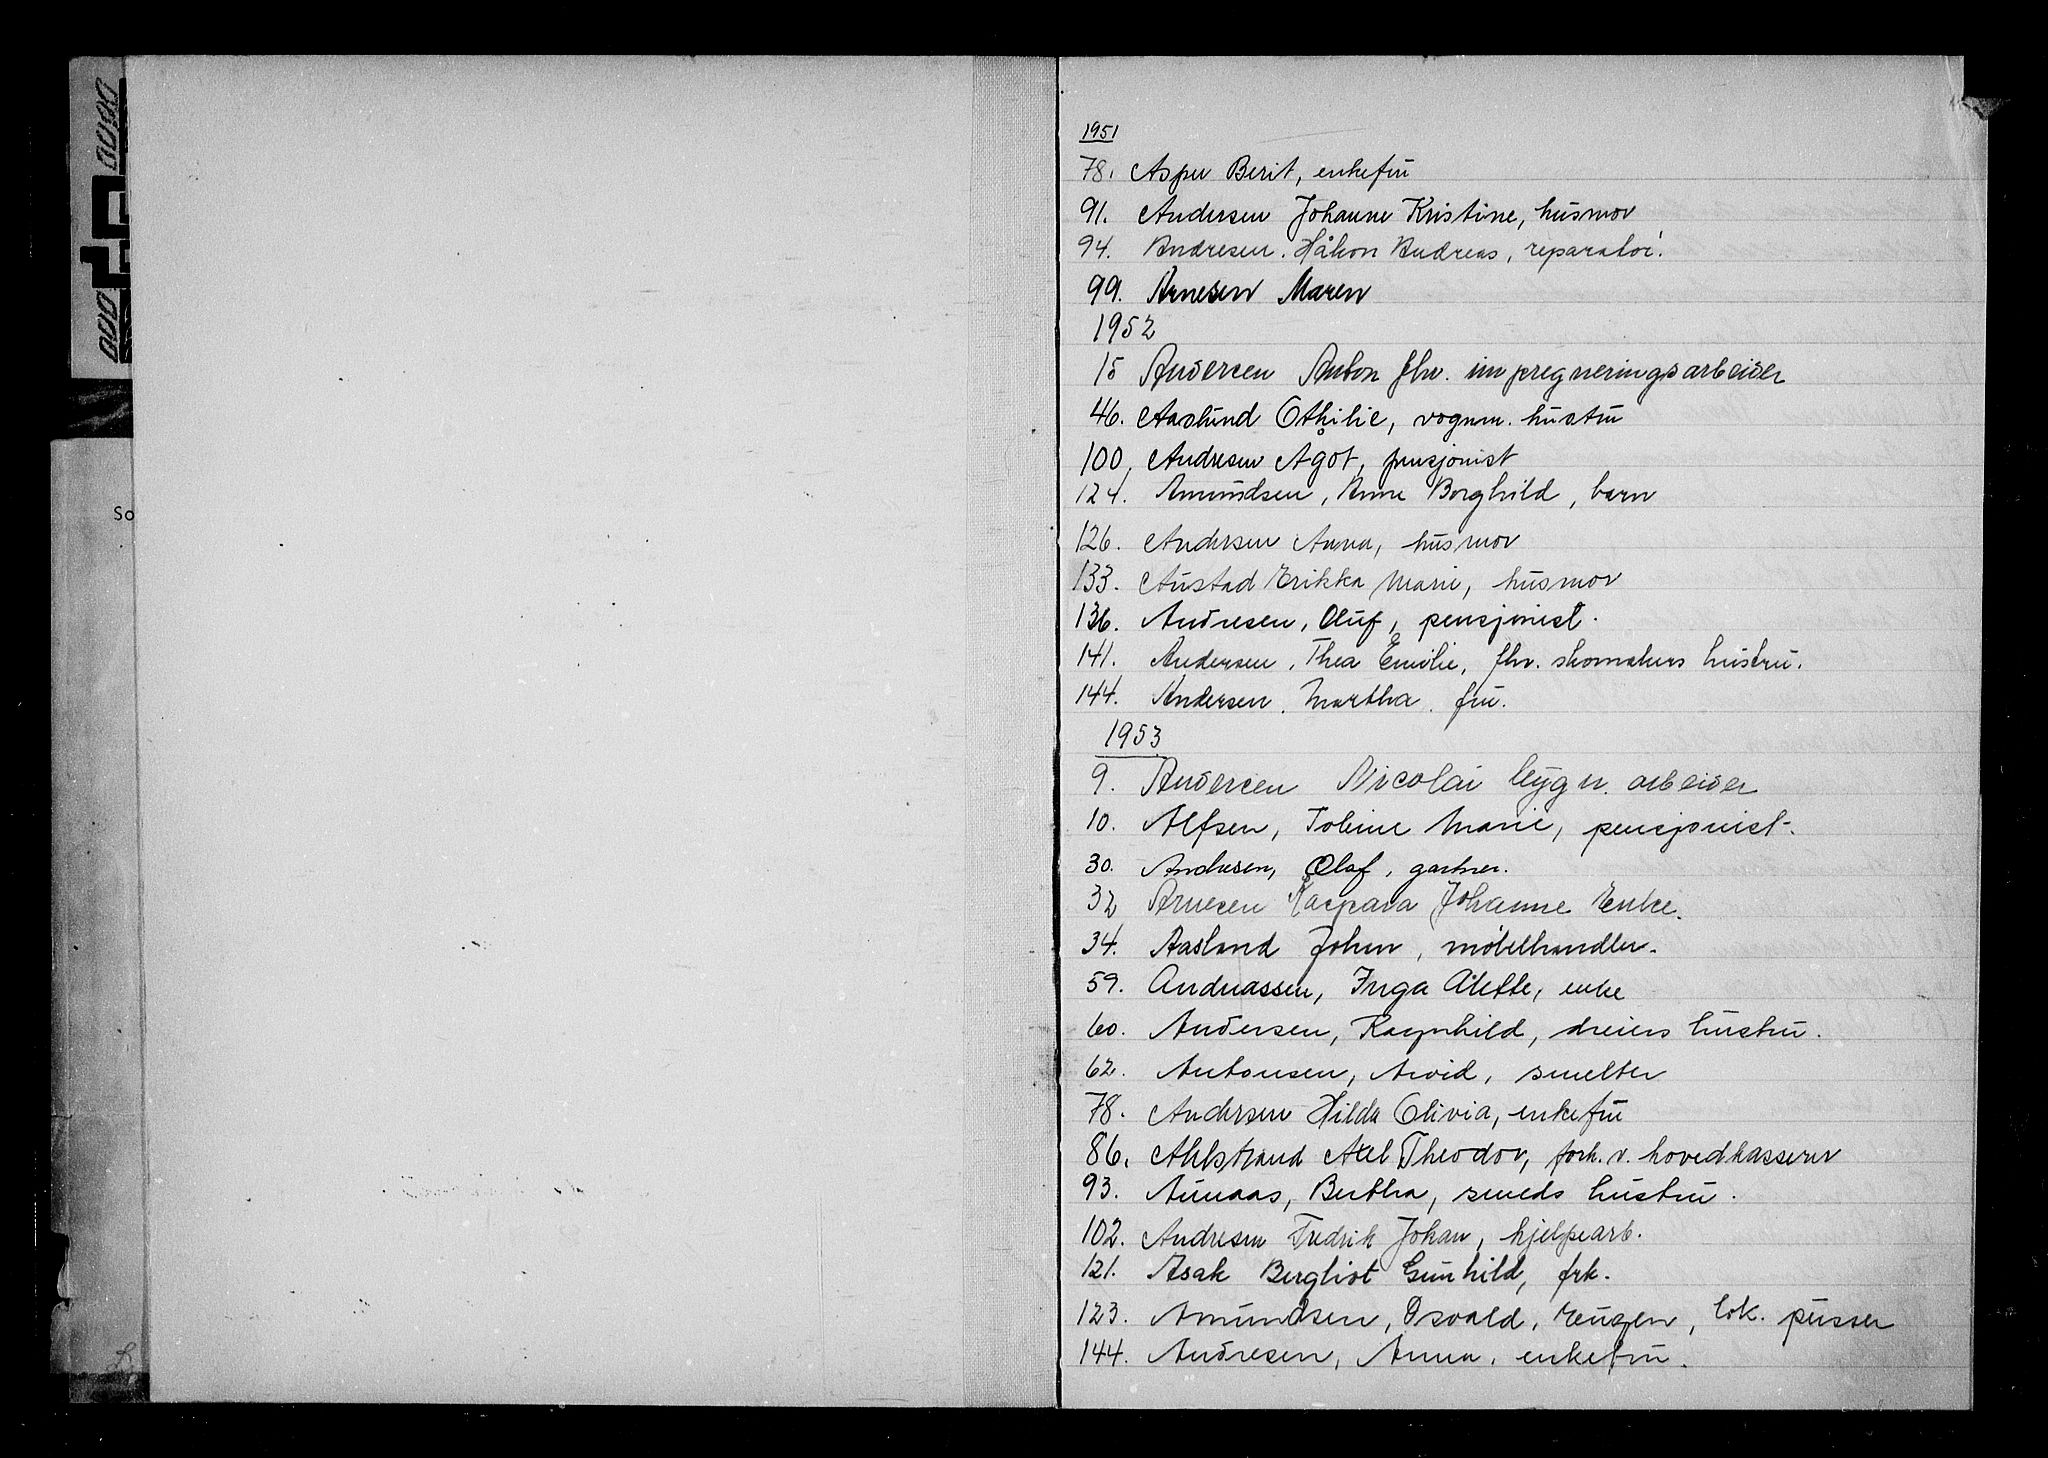 So
1951
78. Asper Berit, enkefru
91. Andersen Johanne Kristine, husmor
94. Andresen. Håkon Andreas, reparatør.
99. Arnesen Maren
1952
15 Andersen Anton fhv. impregneringsarbeider
46. Aaslund Othilie, vognm. hustru
100. Andresen Ågot, pensjonist
124. Amundsen, Anne Borghild, barn
126. Andersen Anna, husmor
133. Austad Erikka Marie, husmor
136. Andresen, Oluf, pensjonist.
141. Andersen, Thea Emilie, fhv. skomakers hustru.
144. Andersen. Martha. fru.
1953
9. Andersen Nicolai bygn. arbeider
10. Alfsen, Toline Marie, pensjonist.
30. Andresen, Olaf, gartner.
32 Arnesen Kaspara Johanne Enke.
34. Aasland Johan, møbelhandler.
59. Andreassen, Inga Alette, enke
60. Andersen, Ragnhild, dreiers hustru.
62. Antonsen, Arvid, smelter
78. Andersen Hilda Olivia, enkefru
86. Ahlstrand Axel Theodor, forh.v. hovedkasserer
93. Aunaas, Bertha, smeds hustru.
102. Andresen Fredrik Johan, hjelpearb.
121. Asak Bergliot Gunhild, frk.
123. Amundsen, Osvald, Eugen, lok. pusser
144. Andresen, Anna. enkefru.